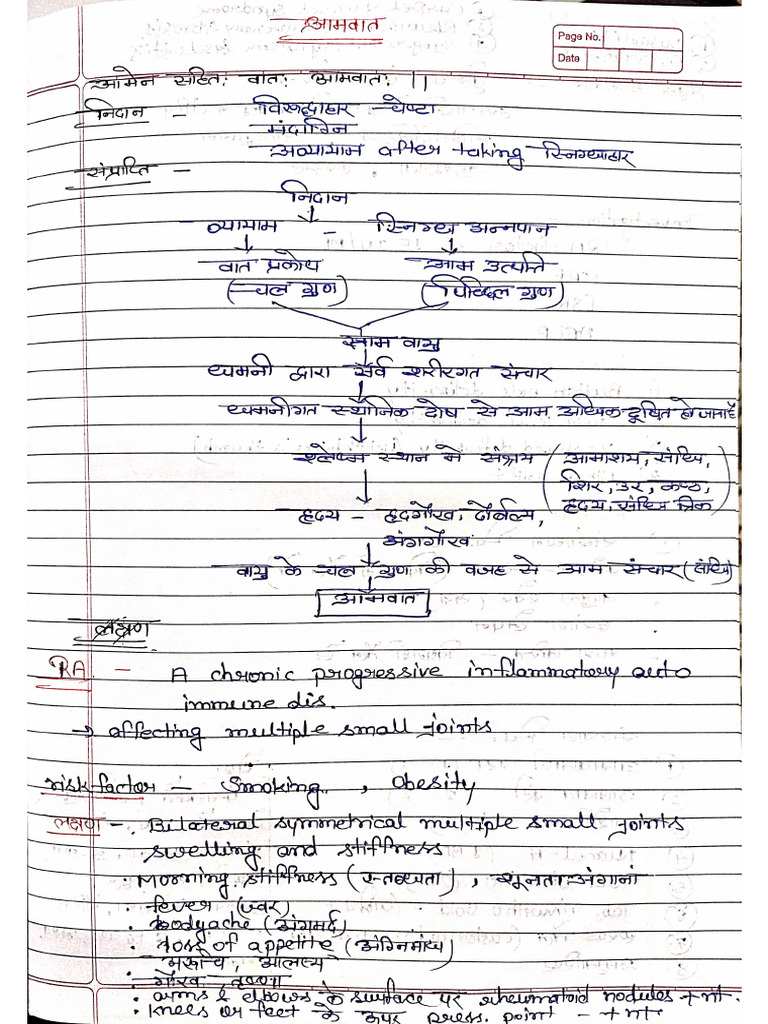 आमवात
Page No.
Date
आमेन सहितः वातः आमवातः ||
निदान - विरुद्धाहार चेष्टा
मंदाग्नि
अव्यायाम after taking स्निग्धाहार
संप्राप्ति -
निदान
व्यायाम - स्निग्ध अन्नपान
वात प्रकोप आम उत्पत्ति
(चल गुण) (पिच्छिल गुण)
साम वायु
धमनी द्वारा सर्व शरीरगत संचार
धमनीगत स्थानिक दोष से आम अधिक दुषित हो जाता है
श्लेष्म स्थान मे संश्रय (आमाशय, संधि,
शिर, उर, कण्ठ,
हृदय, संधि त्रिक)
हृदय - हृदगौरव, दौर्बल्य,
अंगगौरव
वायु के चल गुण की वजह से आम संचार (संधि)
आमवात
लक्षण
RA - A chronic progressive inflammatory auto
immune dis.
→ affecting multiple small joints
risk factor - Smoking, obesity
लक्षण - Bilateral symmetrical multiple small joints
swelling and stiffness
• Morning stiffness (स्तब्धता), शूनता अंगानां
• fever (ज्वर)
• bodyache (अंगमर्द)
• loss of appetite (अग्निमांद्य)
अरूचि, आलस्य
• गौरव, तृष्णा
• arms & elbows के surface पर rheumatoid nodules +nt.
• knees or feet के ऊपर press. point - +nt